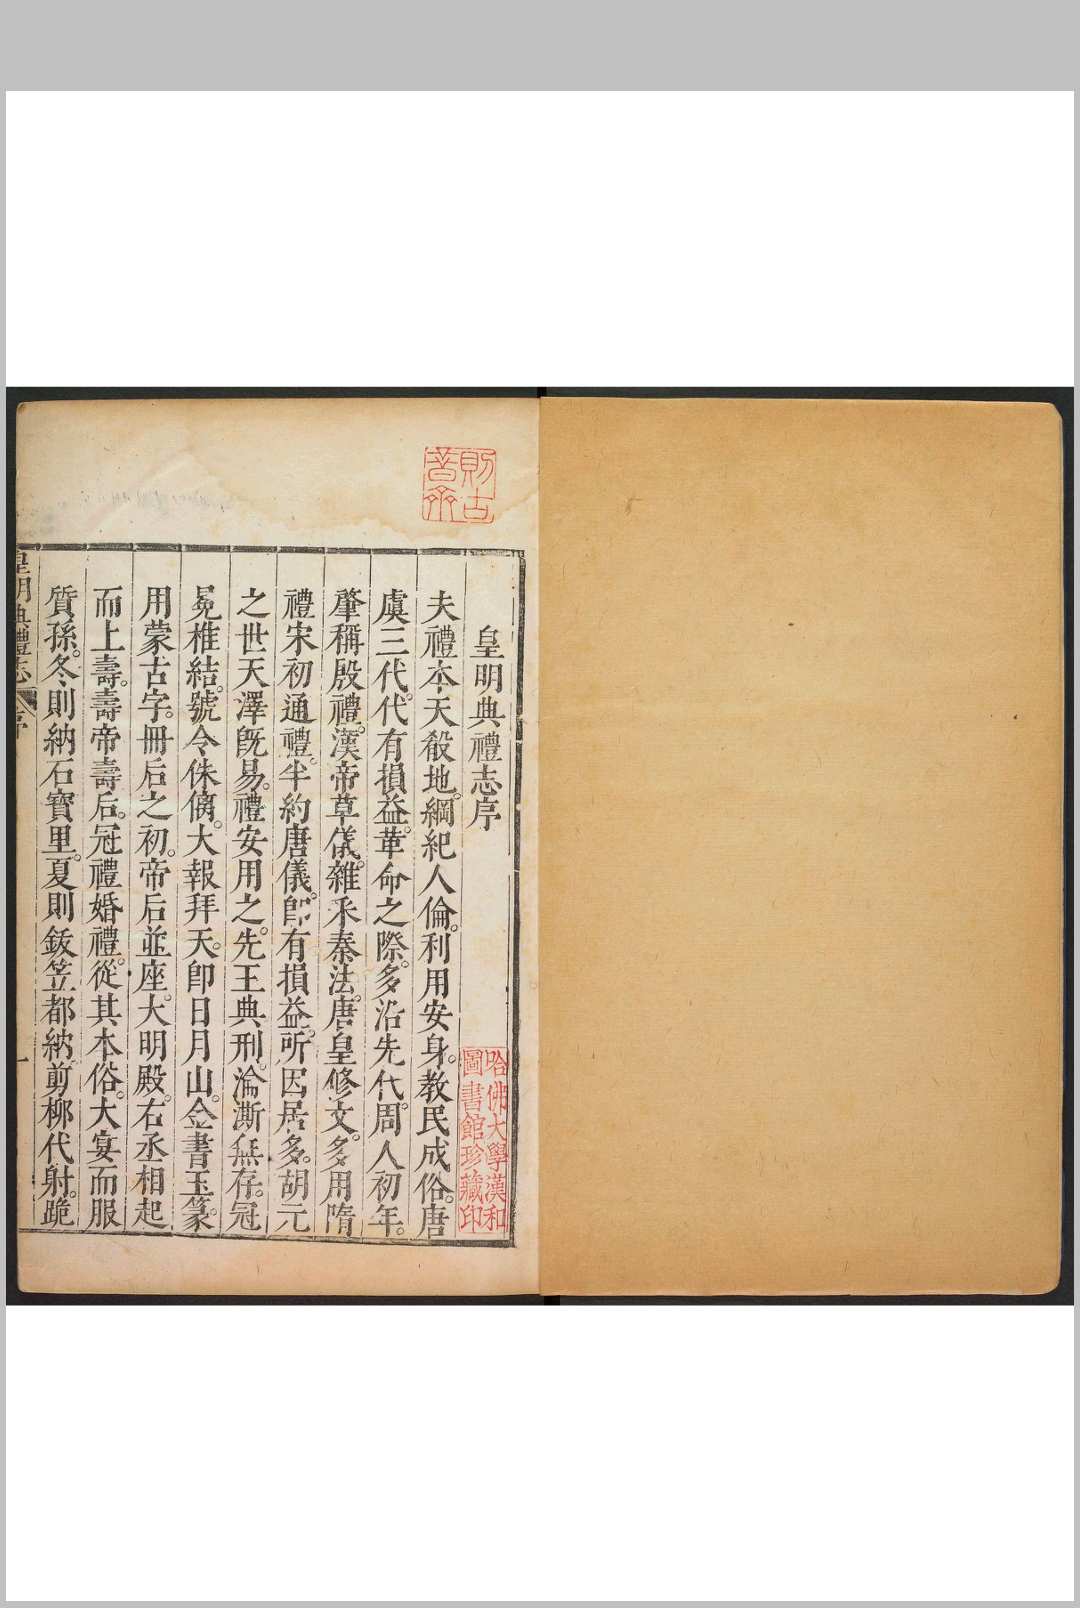 則古
音齋
皇明典禮志序
哈佛大學漢和
圖書館珍藏印
夫禮本天殽地。綱紀人倫。利用安身。教民成俗。唐
虞三代。代有損益。革命之際。多沿先代。周人初年。
肇稱殷禮。漢帝草儀。雜采秦法。唐皇修文。多用隋
禮。宋初通禮。半約唐儀。卽有損益。所因居多。胡元
之世。天澤旣易。禮安用之。先王典刑。淪澌無存。冠
冕椎結。號令侏㒧。大報拜天。卽日月山。金書玉篆。
用蒙古字。冊后之初。帝后並座。大明殿。右丞相起
而上壽。壽帝壽后。冠禮婚禮。從其本俗。大宴而服
質孫。冬則納石寶里。夏則鈸笠都納。剪柳代射。跪
皇明典禮志
序
一